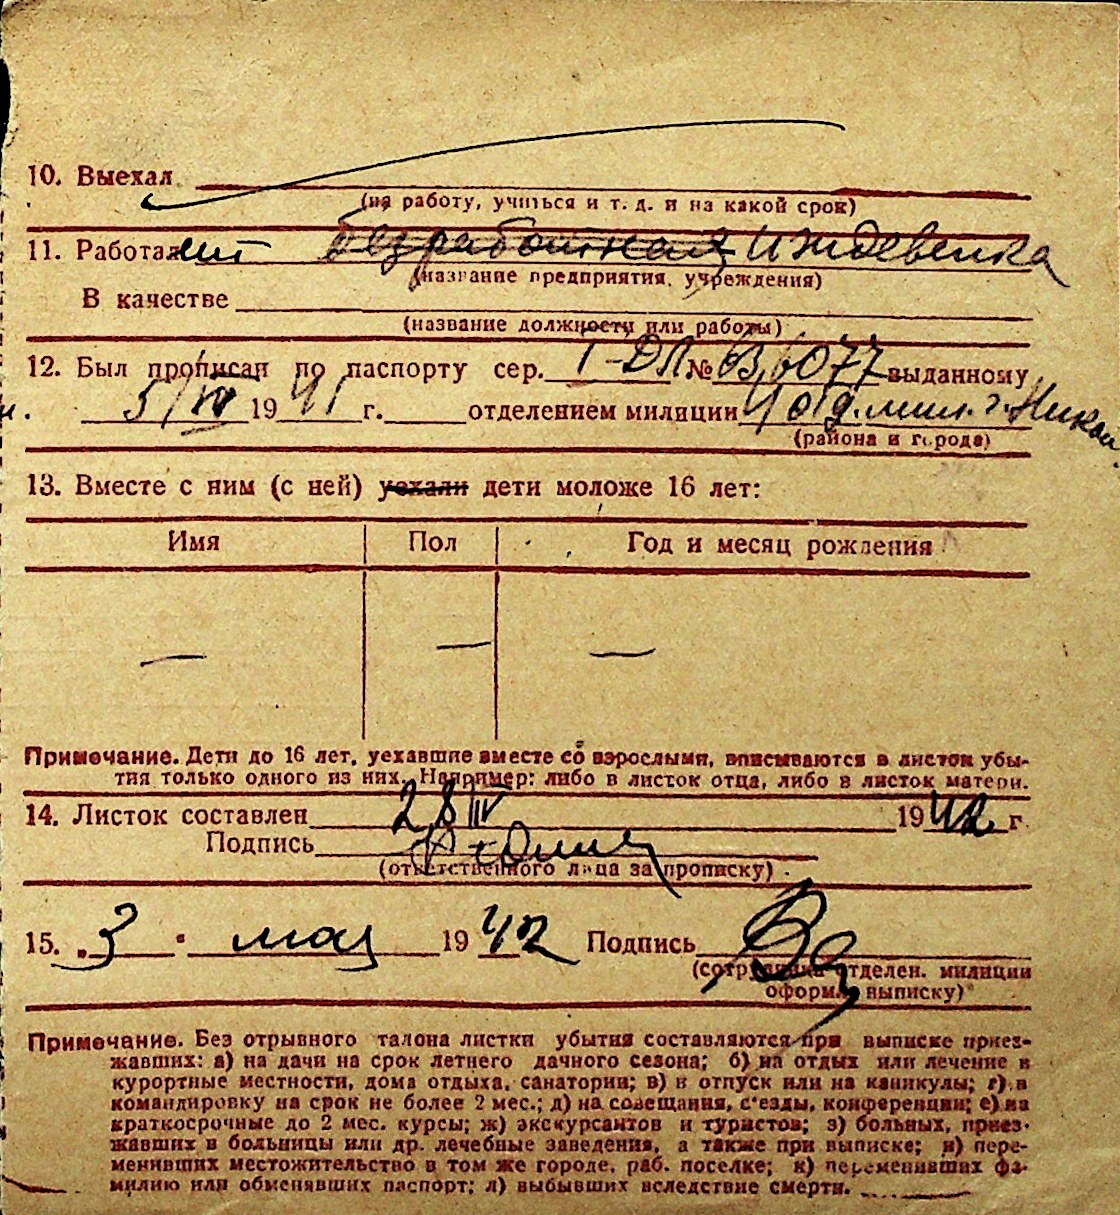 10. Выехал
(на работу, учиться и т. д. и на какой срок)
11. Работает безработная Иждевенка
(название предприятия, учреждения)
В качестве
(название должности или работы)
12. Был прописан по паспорту сер. I-ДЛ № 636077 выданному
5/IV 1941 г. отделением милиции 4 отд. мил. г. Никол
(района и города)
13. Вместе с ним (с ней) уехали дети моложе 16 лет:
Имя Пол Год и месяц рождения
— — —
Примечание. Дети до 16 лет, уехавшие вместе со взрослыми, вписываются в листок убы-
тия только одного из них. Например: либо в листок отца, либо в листок матери.
14. Листок составлен 28/IV 1942 г.
Подпись
(ответственного лица за прописку)
15. „3" мая 1942 Подпись
(сотрудника отделен. милиции
оформ. выписку)
Примечание. Без отрывного талона листки убытия составляются при выписке приез-
жавших: а) на дачи на срок летнего дачного сезона; б) на отдых или лечение в
курортные местности, дома отдыха, санатории; в) в отпуск или на каникулы; г) в
командировку на срок не более 2 мес.; д) на совещания, с'езды, конференции; е) на
краткосрочные до 2 мес. курсы; ж) экскурсантов и туристов; з) больных, приез-
жавших в больницы или др. лечебные заведения, а также при выписке; и) пере-
менивших местожительство в том же городе, раб. поселке; к) переменивших фа-
милию или обменявших паспорт; л) выбывших вследствие смерти.